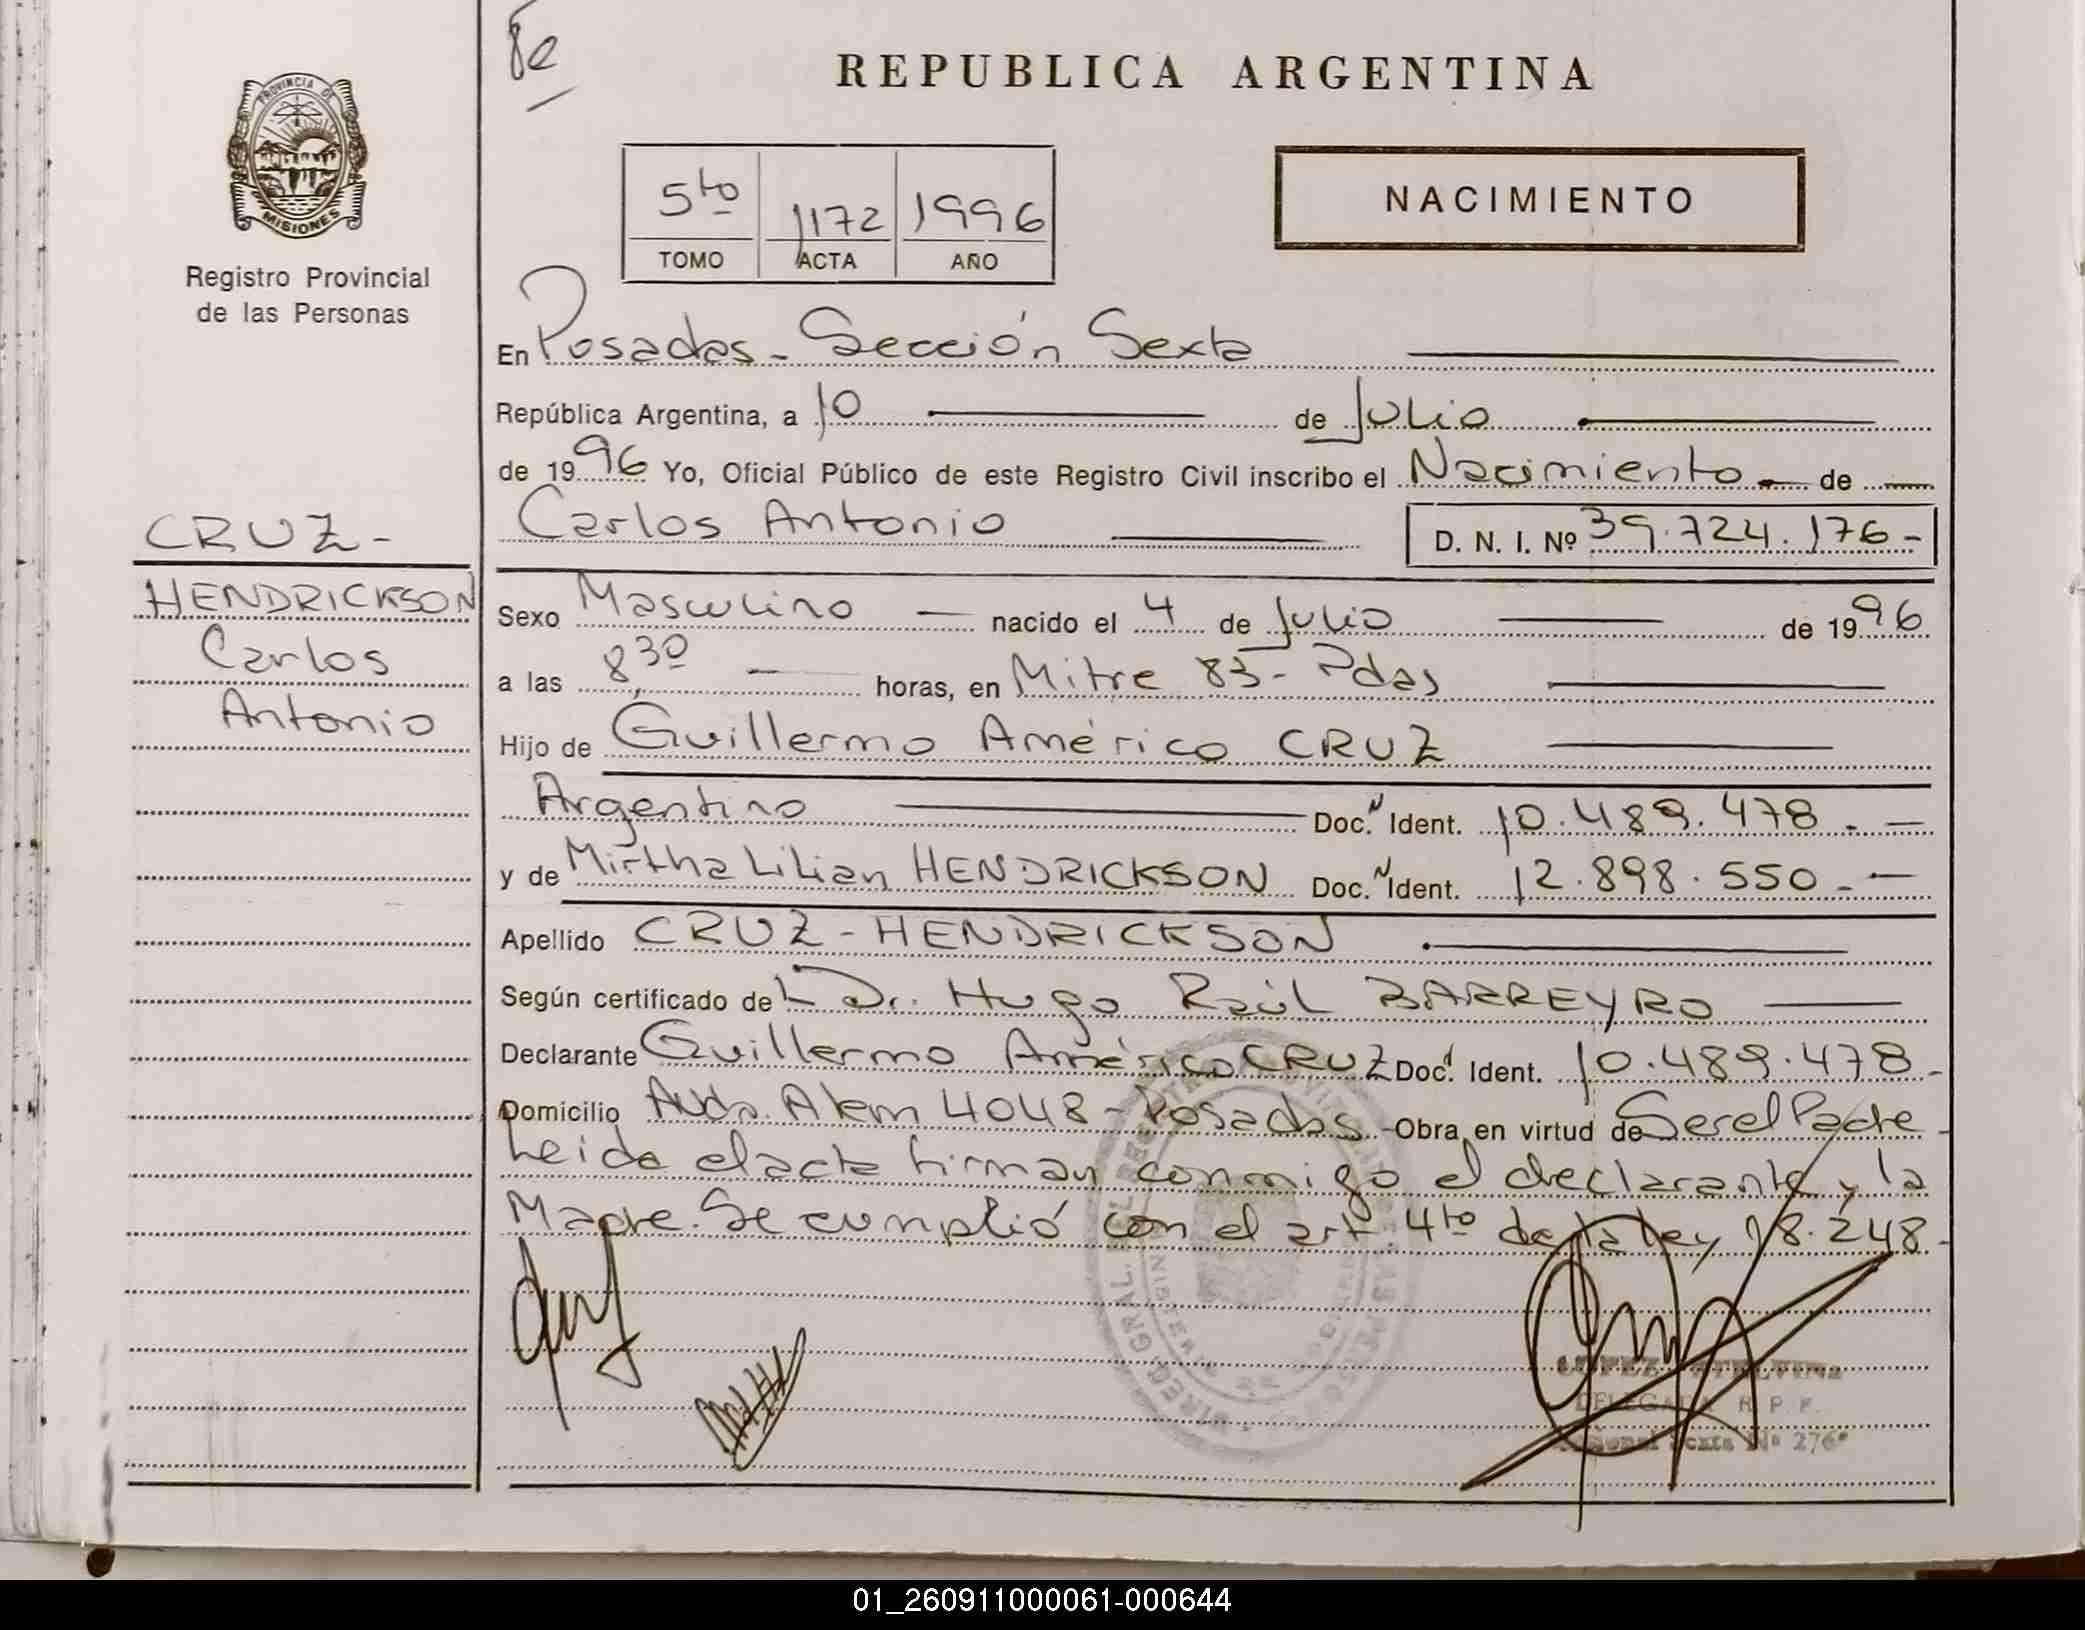 8e
REPUBLICA ARGENTINA
PROVINCIA DE
MISIONES
Registro Provincial
de las Personas
5to 1172 1996
TOMO ACTA AÑO
NACIMIENTO
En Posadas - Sección Sexta
República Argentina, a 10 de Julio
de 1996 Yo, Oficial Público de este Registro Civil inscribo el Nacimiento de
Carlos Antonio D. N. I. Nº 39.724.176-
CRUZ-
HENDRICKSON
Carlos
Antonio
Sexo Masculino nacido el 4 de Julio de 1996
a las 8,30 horas, en Mitre 83 - Pdas
Hijo de Guillermo Américo CRUZ
Argentino Doc. Ident. 10.489.478.-
y de Mirtha Lilian HENDRICKSON Doc. Ident. 12.898.550.-
Apellido CRUZ - HENDRICKSON
Según certificado del Dr. Hugo Raúl BARREYRO
Declarante Guillermo Américo CRUZ Doc. Ident. 10.489.478-
Domicilio Avda. Alem 4048 - Posadas - Obra en virtud de Ser el Padre -
Leida el acta firman conmigo el declarante y la
Madre. Se cumplió con el art. 4to de la ley 18.248-
LOPEZ ETELVINA
DELEGADA R. P. P.
Sexta Nº 276
01_260911000061-000644